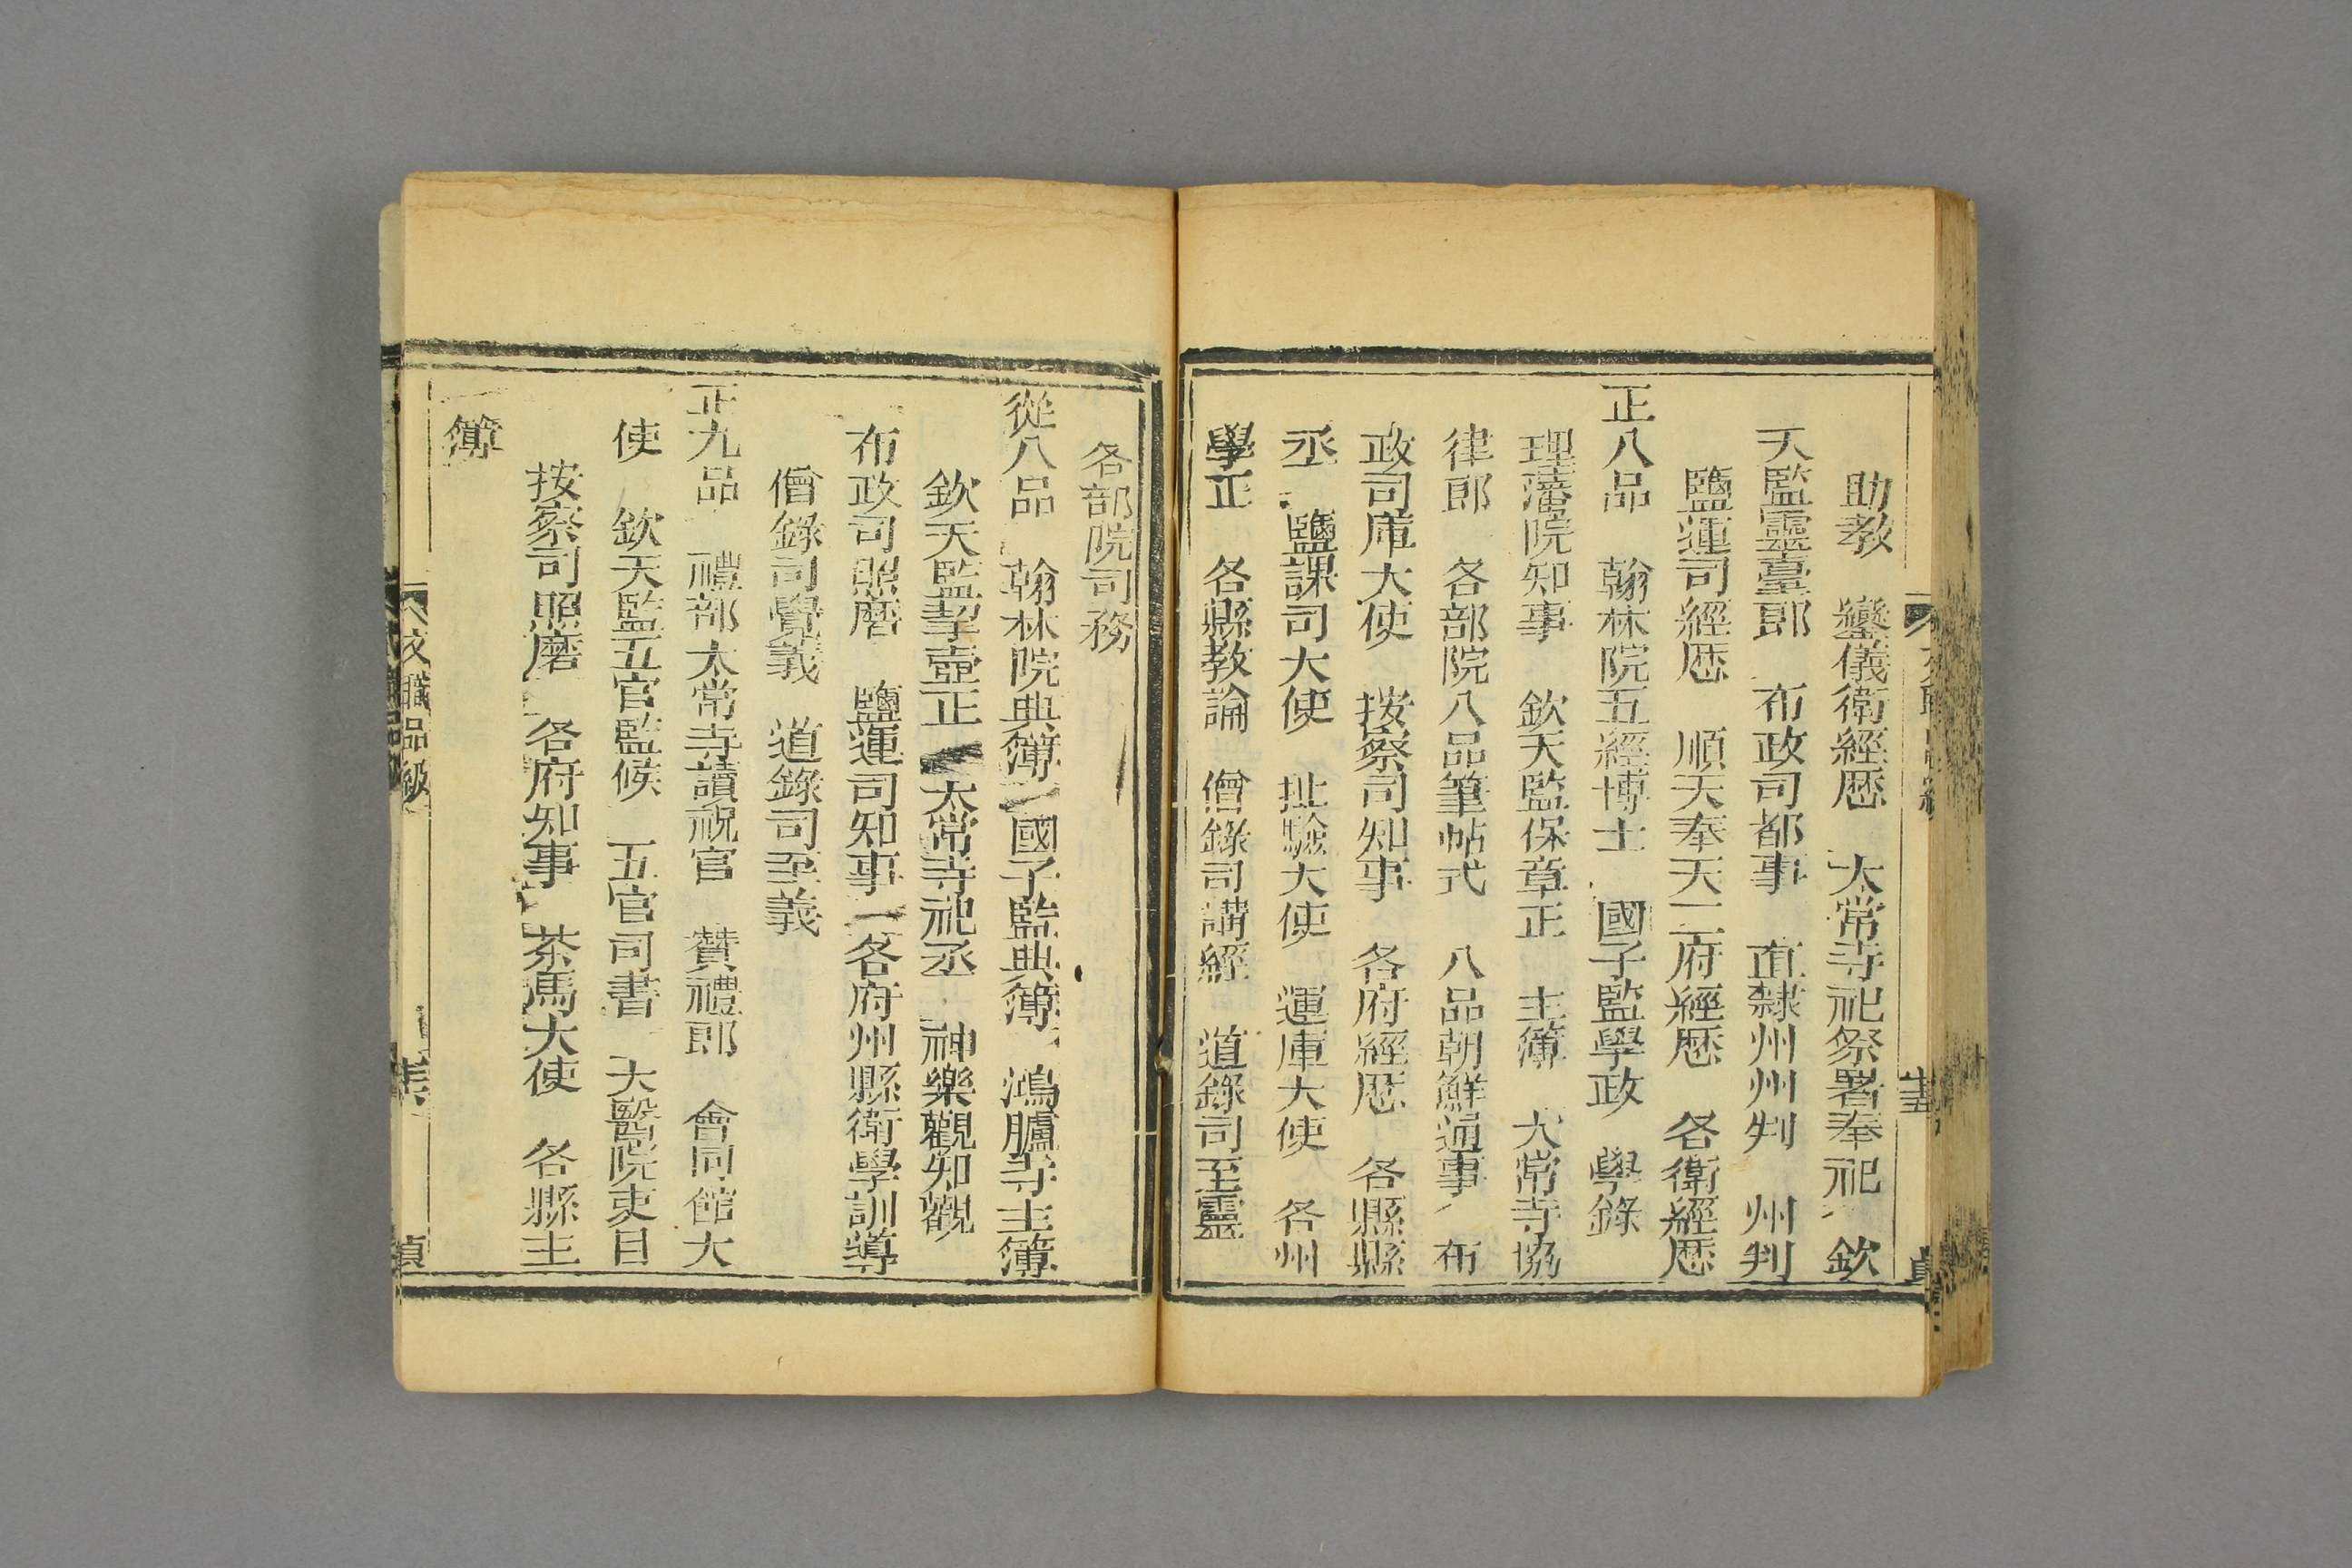 助教 鑾儀衛經歷 太常寺祀祭署奉祀 欽
天監靈臺郎 布政司都事 直隸州州判 州判
鹽運司經歷 順天奉天二府經歷 各衛經歷
正八品 翰林院五經博士 國子監學政 學錄
理藩院知事 欽天監保章正 主簿 太常寺協
律郎 各部院八品筆帖式 八品朝鮮通事 布
政司庫大使 按察司知事 各府經歷 各縣縣
丞 鹽課司大使 批驗大使 運庫大使 各州
學正 各縣教諭 僧錄司講經 道錄司至靈
各部院司務
從八品 翰林院典簿 國子監典簿 鴻臚寺主簿
欽天監挈壺正 太常寺祀丞 神樂觀知觀
布政司照磨 鹽運司知事 各府州縣衛學訓導
僧錄司覺義 道錄司至義
正九品 禮部太常寺讀祝官 贊禮郎 會同館大
使 欽天監五官監候 五官司書 大醫院吏目
按察司照磨 各府知事 茶馬大使 各縣主
簿
文職品級